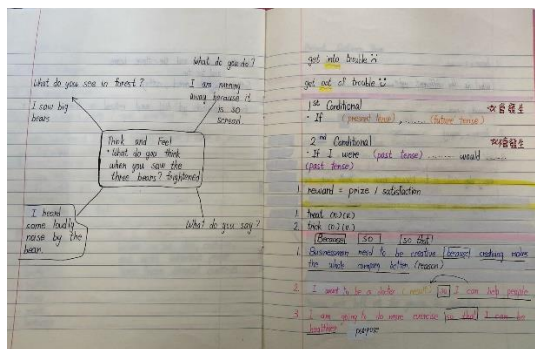 What do you do?
What do you see in forest?
I am running
away because it
is so
scread
I saw big
bears
Think and Feel
• What do you think
when you saw the
three bears? frightened
I heard
some loudly
noise by the
bear.
What do you say?
get into trouble
get out of trouble
1st Conditional
- If (present tense), ...... (future tense)
2nd Conditional
- If I were (past tense) ...... would ....
(past tense)
1 reward = prize / satisfaction
1 treat (n)(v)
2 trick (n)(v)
Because so so that
1. Businessmen need to be creative because making
the whole company better. (reason)
2. I want to be a doctor (result) so I can help people.
3. I am going to do more exercise so that I can be
healthier purpose